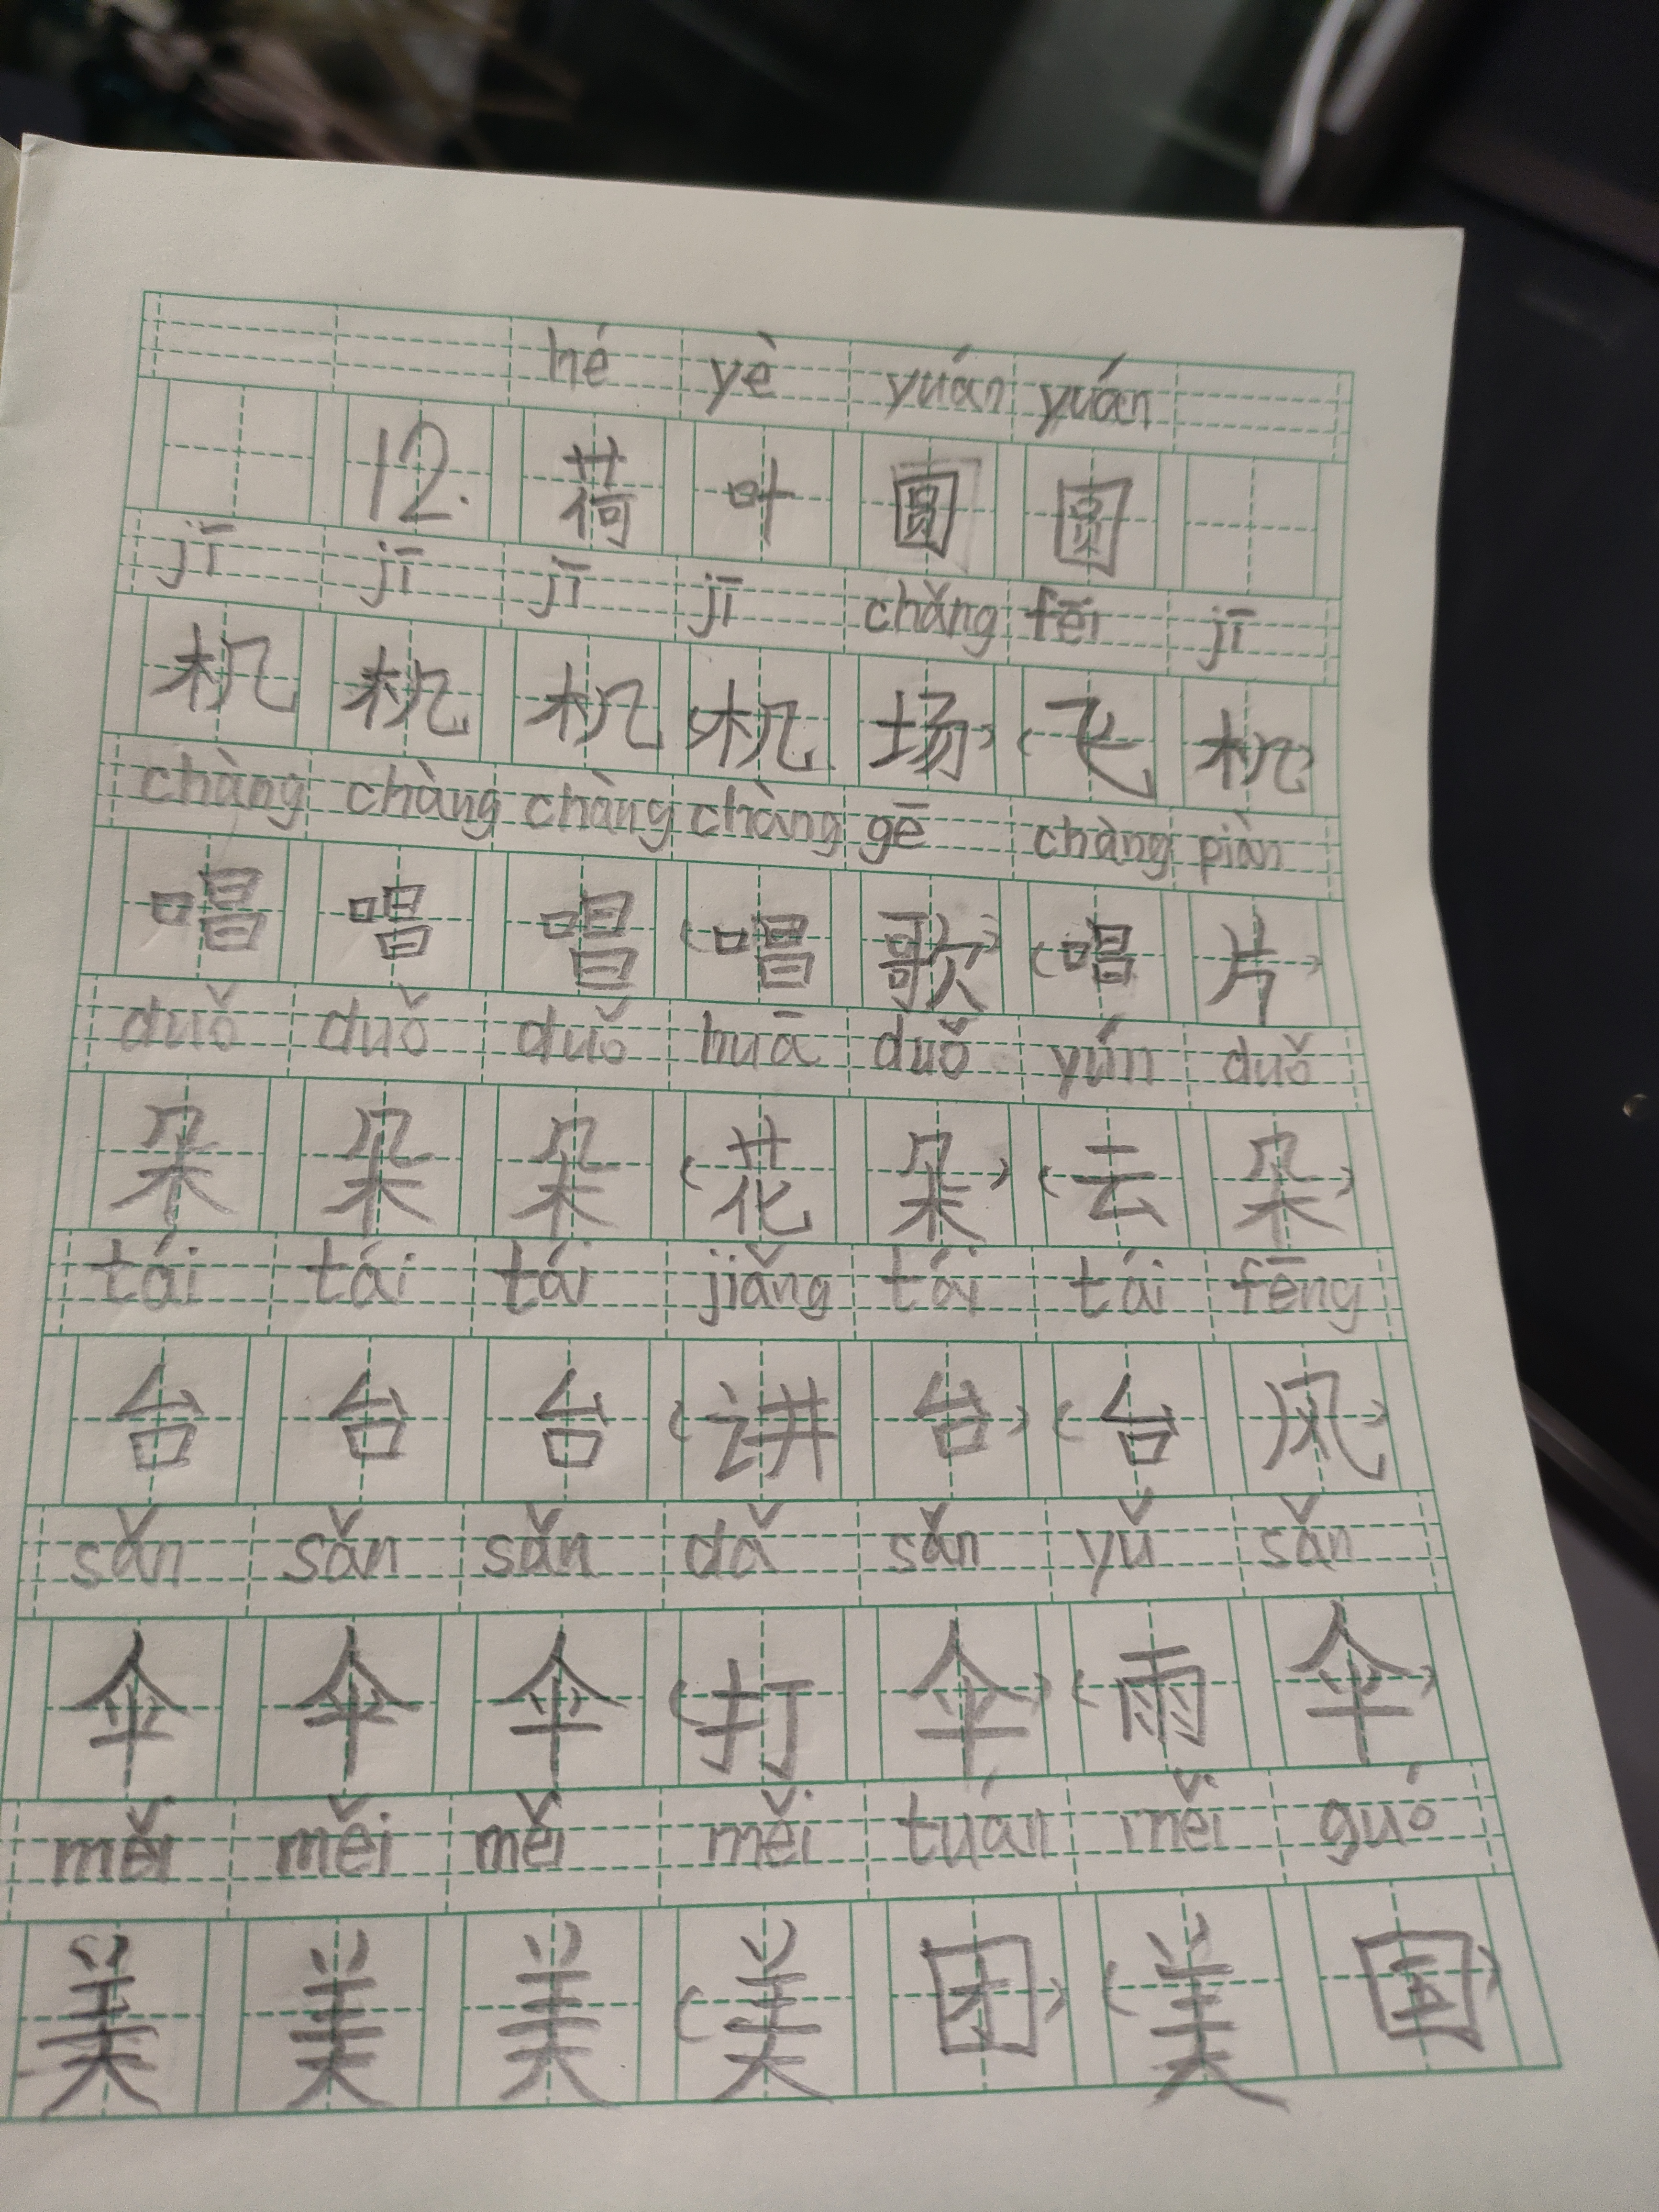 hé yè yuán yuán
12. 荷 叶 圆 圆
jī jī jī jī chǎng fēi jī
机 机 机 (机 场) (飞 机)
chàng chàng chàng chàng gē chàng piàn
唱 唱 唱 (唱 歌) (唱 片)
duǒ duǒ duǒ huā duǒ yún duǒ
朵 朵 朵 (花 朵) (云 朵)
tái tái tái jiǎng tái tái fēng
台 台 台 (讲 台) (台 风)
sǎn sǎn sǎn dǎ sǎn yǔ sǎn
伞 伞 伞 (打 伞) (雨 伞)
měi měi měi měi tuán měi guó
美 美 美 (美 团) (美 国)